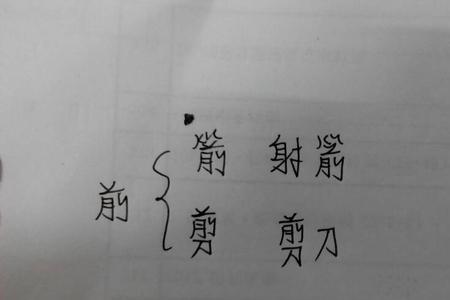 箭 射箭
前
剪 剪刀